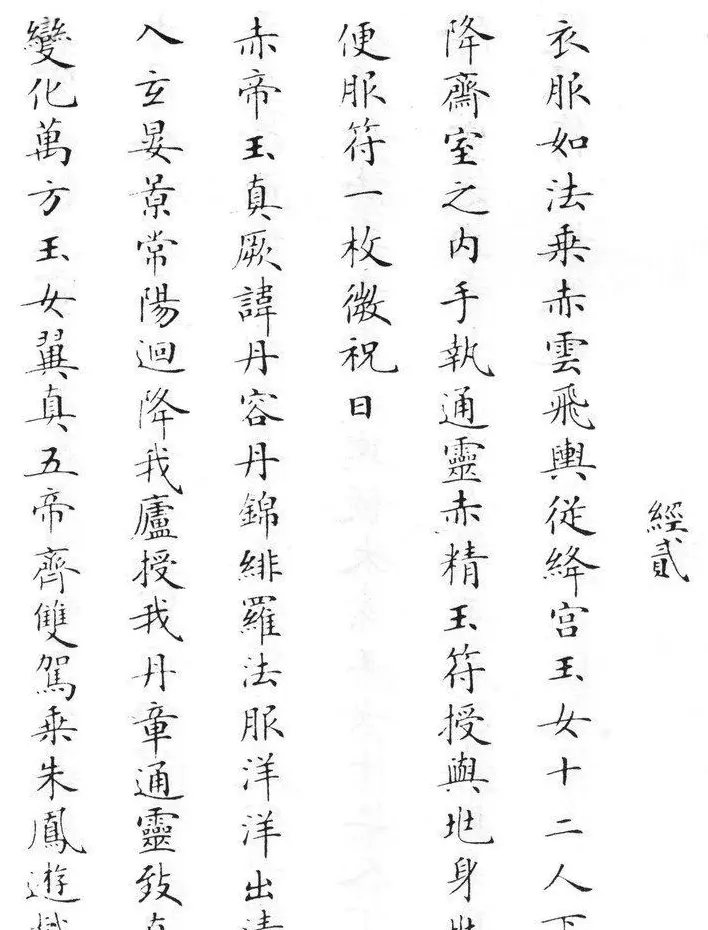 經貳
衣服如法乘赤雲飛輿從絳宮玉女十二人下
降齋室之内手執通靈赤精玉符授與兆身兆
便服符一枚微祝曰
赤帝玉真厥諱丹容丹錦緋羅法服洋洋出清
入玄晏景常陽迴降我廬授我丹章通靈致真
變化萬方玉女翼真五帝齊雙駕乘朱鳳遊戲